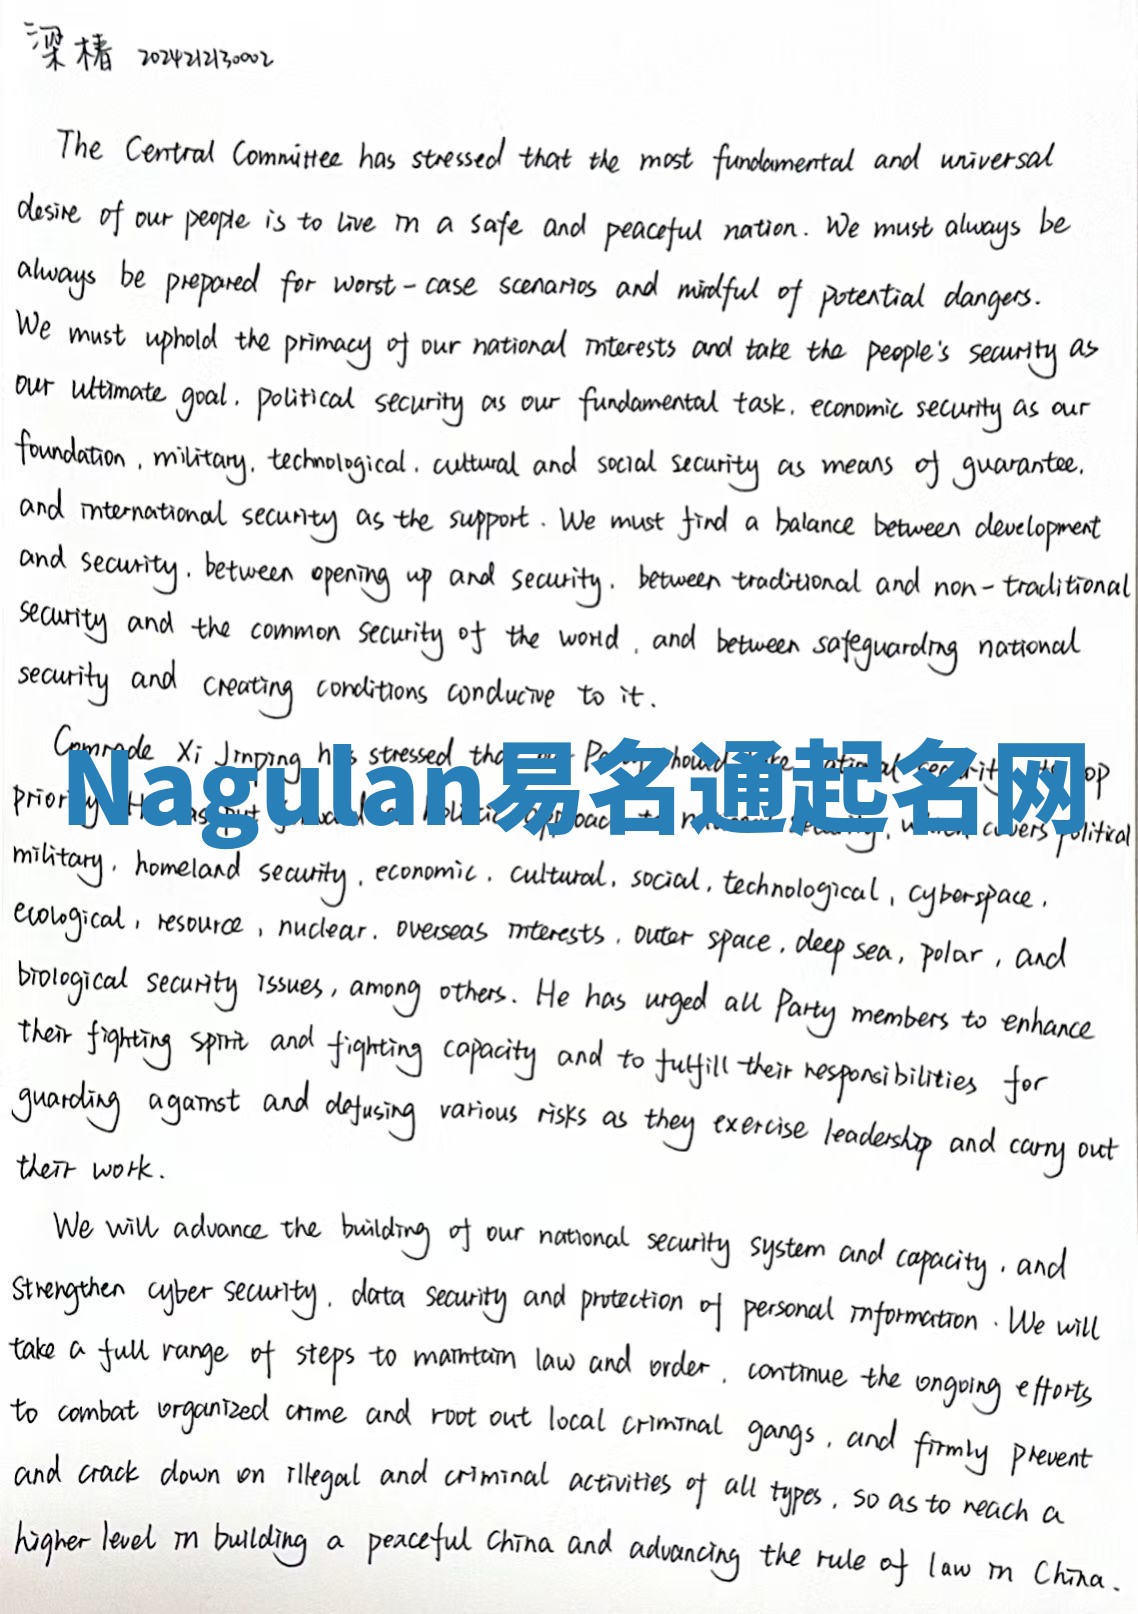 梁椿 2024212130002
The Central Committee has stressed that the most fundamental and universal
desire of our people is to live in a safe and peaceful nation. We must always be
always be prepared for worst-case scenarios and mindful of potential dangers.
We must uphold the primacy of our national interests and take the people's security as
our ultimate goal, political security as our fundamental task, economic security as our
foundation, military, technological, cultural and social security as means of guarantee,
and international security as the support. We must find a balance between development
and security, between opening up and security, between traditional and non-traditional
security and the common security of the world, and between safeguarding national
security and creating conditions conducive to it.
Comrade Xi Jinping has stressed
Nagulan易名通起名网
priority covers political
military, homeland security, economic, cultural, social, technological, cyberspace,
ecological, resource, nuclear, overseas interests, outer space, deep sea, polar, and
biological security issues, among others. He has urged all Party members to enhance
their fighting spirit and fighting capacity and to fulfill their responsibilities for
guarding against and defusing various risks as they exercise leadership and carry out
their work.
We will advance the building of our national security system and capacity, and
strengthen cyber security, data security and protection of personal information. We will
take a full range of steps to maintain law and order, continue the ongoing efforts
to combat organized crime and root out local criminal gangs, and firmly prevent
and crack down on illegal and criminal activities of all types, so as to reach a
higher level in building a peaceful China and advancing the rule of law in China.